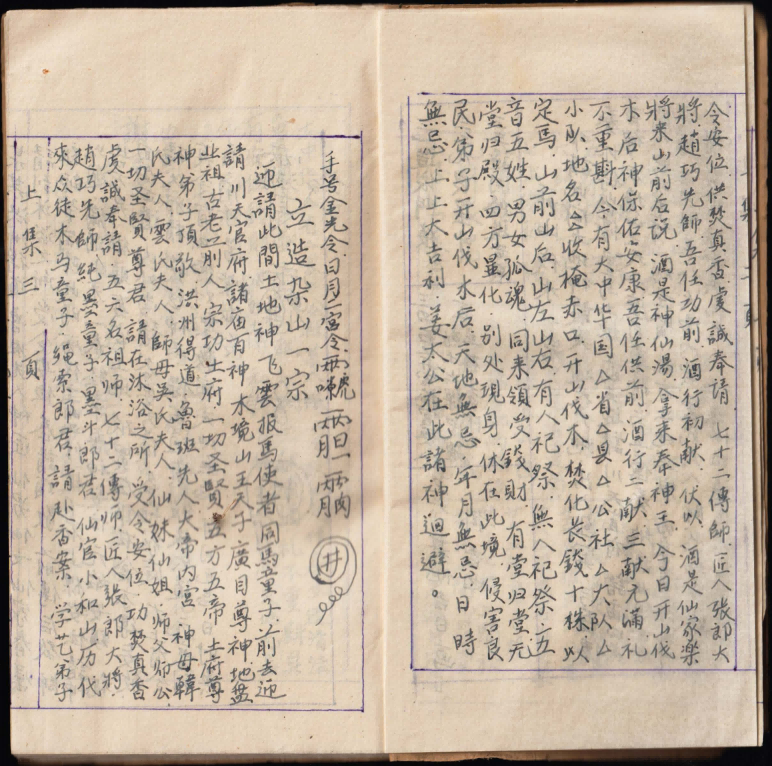 令安位供焚真香虔誠奉請七十二傳師匠人張郎大
將趙巧先師吾任功前酒行初献伏以酒是仙家樂
將來山前后説酒是神仙湯拿來奉神王今日开山伐
木后神保佑安康吾任供前酒行二献三献元滿礼
不重斟今有大中华国△省△县△公社△大队△
小队地名△收掩赤口开山伐木焚化長錢十株以
定馬山前山后山左山右有人祀祭無人祀祭五
音五姓男女孤魂同来領受錢財有堂归堂无
堂归殿四方显化别处現身休在此境侵害良
民弟子开山伐木后天地無忌年月無忌日時
無忌上上大吉利姜太公在此諸神迴避。
手号金光令日月二宫令
井
立造架山一宗
迎請此間土地神飞雲报馬使者同馬童子前去迎
請川天官府諸庙百神木境山王天子廣目尊神地盘
业祖古老前人宗功土府一切圣賢五方五帝土府尊
神弟子頂敬洪州得道魯班先人大帝内宮神母韓
氏夫人雲氏夫人師母吳氏夫人仙妹仙姐师父师公
一切圣賢尊君請在沐浴之所受令安位功焚真香
虔誠奉請五六名祖师七十二傳师匠人張郎大將
趙巧先師純墨童子墨斗郎君仙官小和山历代
來众徒木马童子绳索郎君請赴香案学艺弟子
上集三頁